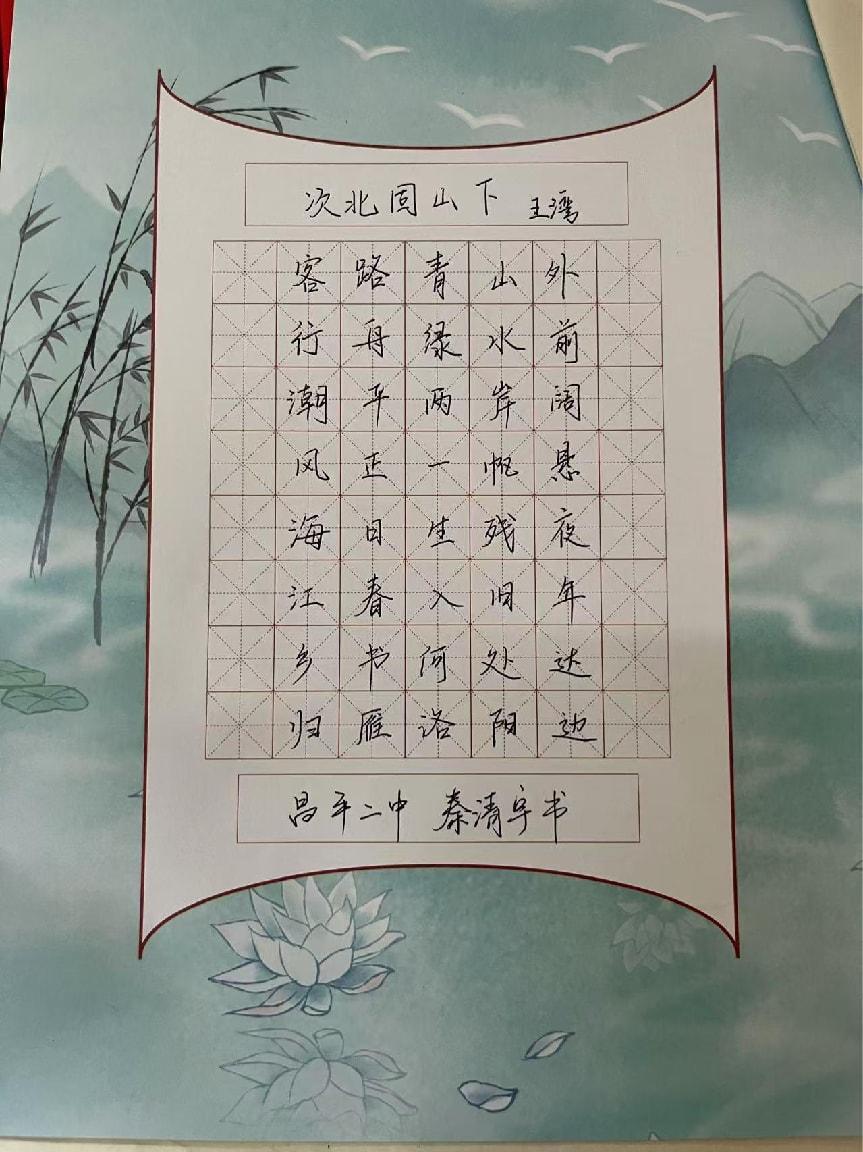 次北固山下 王湾
客路青山外
行舟绿水前
潮平两岸阔
风正一帆悬
海日生残夜
江春入旧年
乡书何处达
归雁洛阳边
昌平二中 秦清宇书